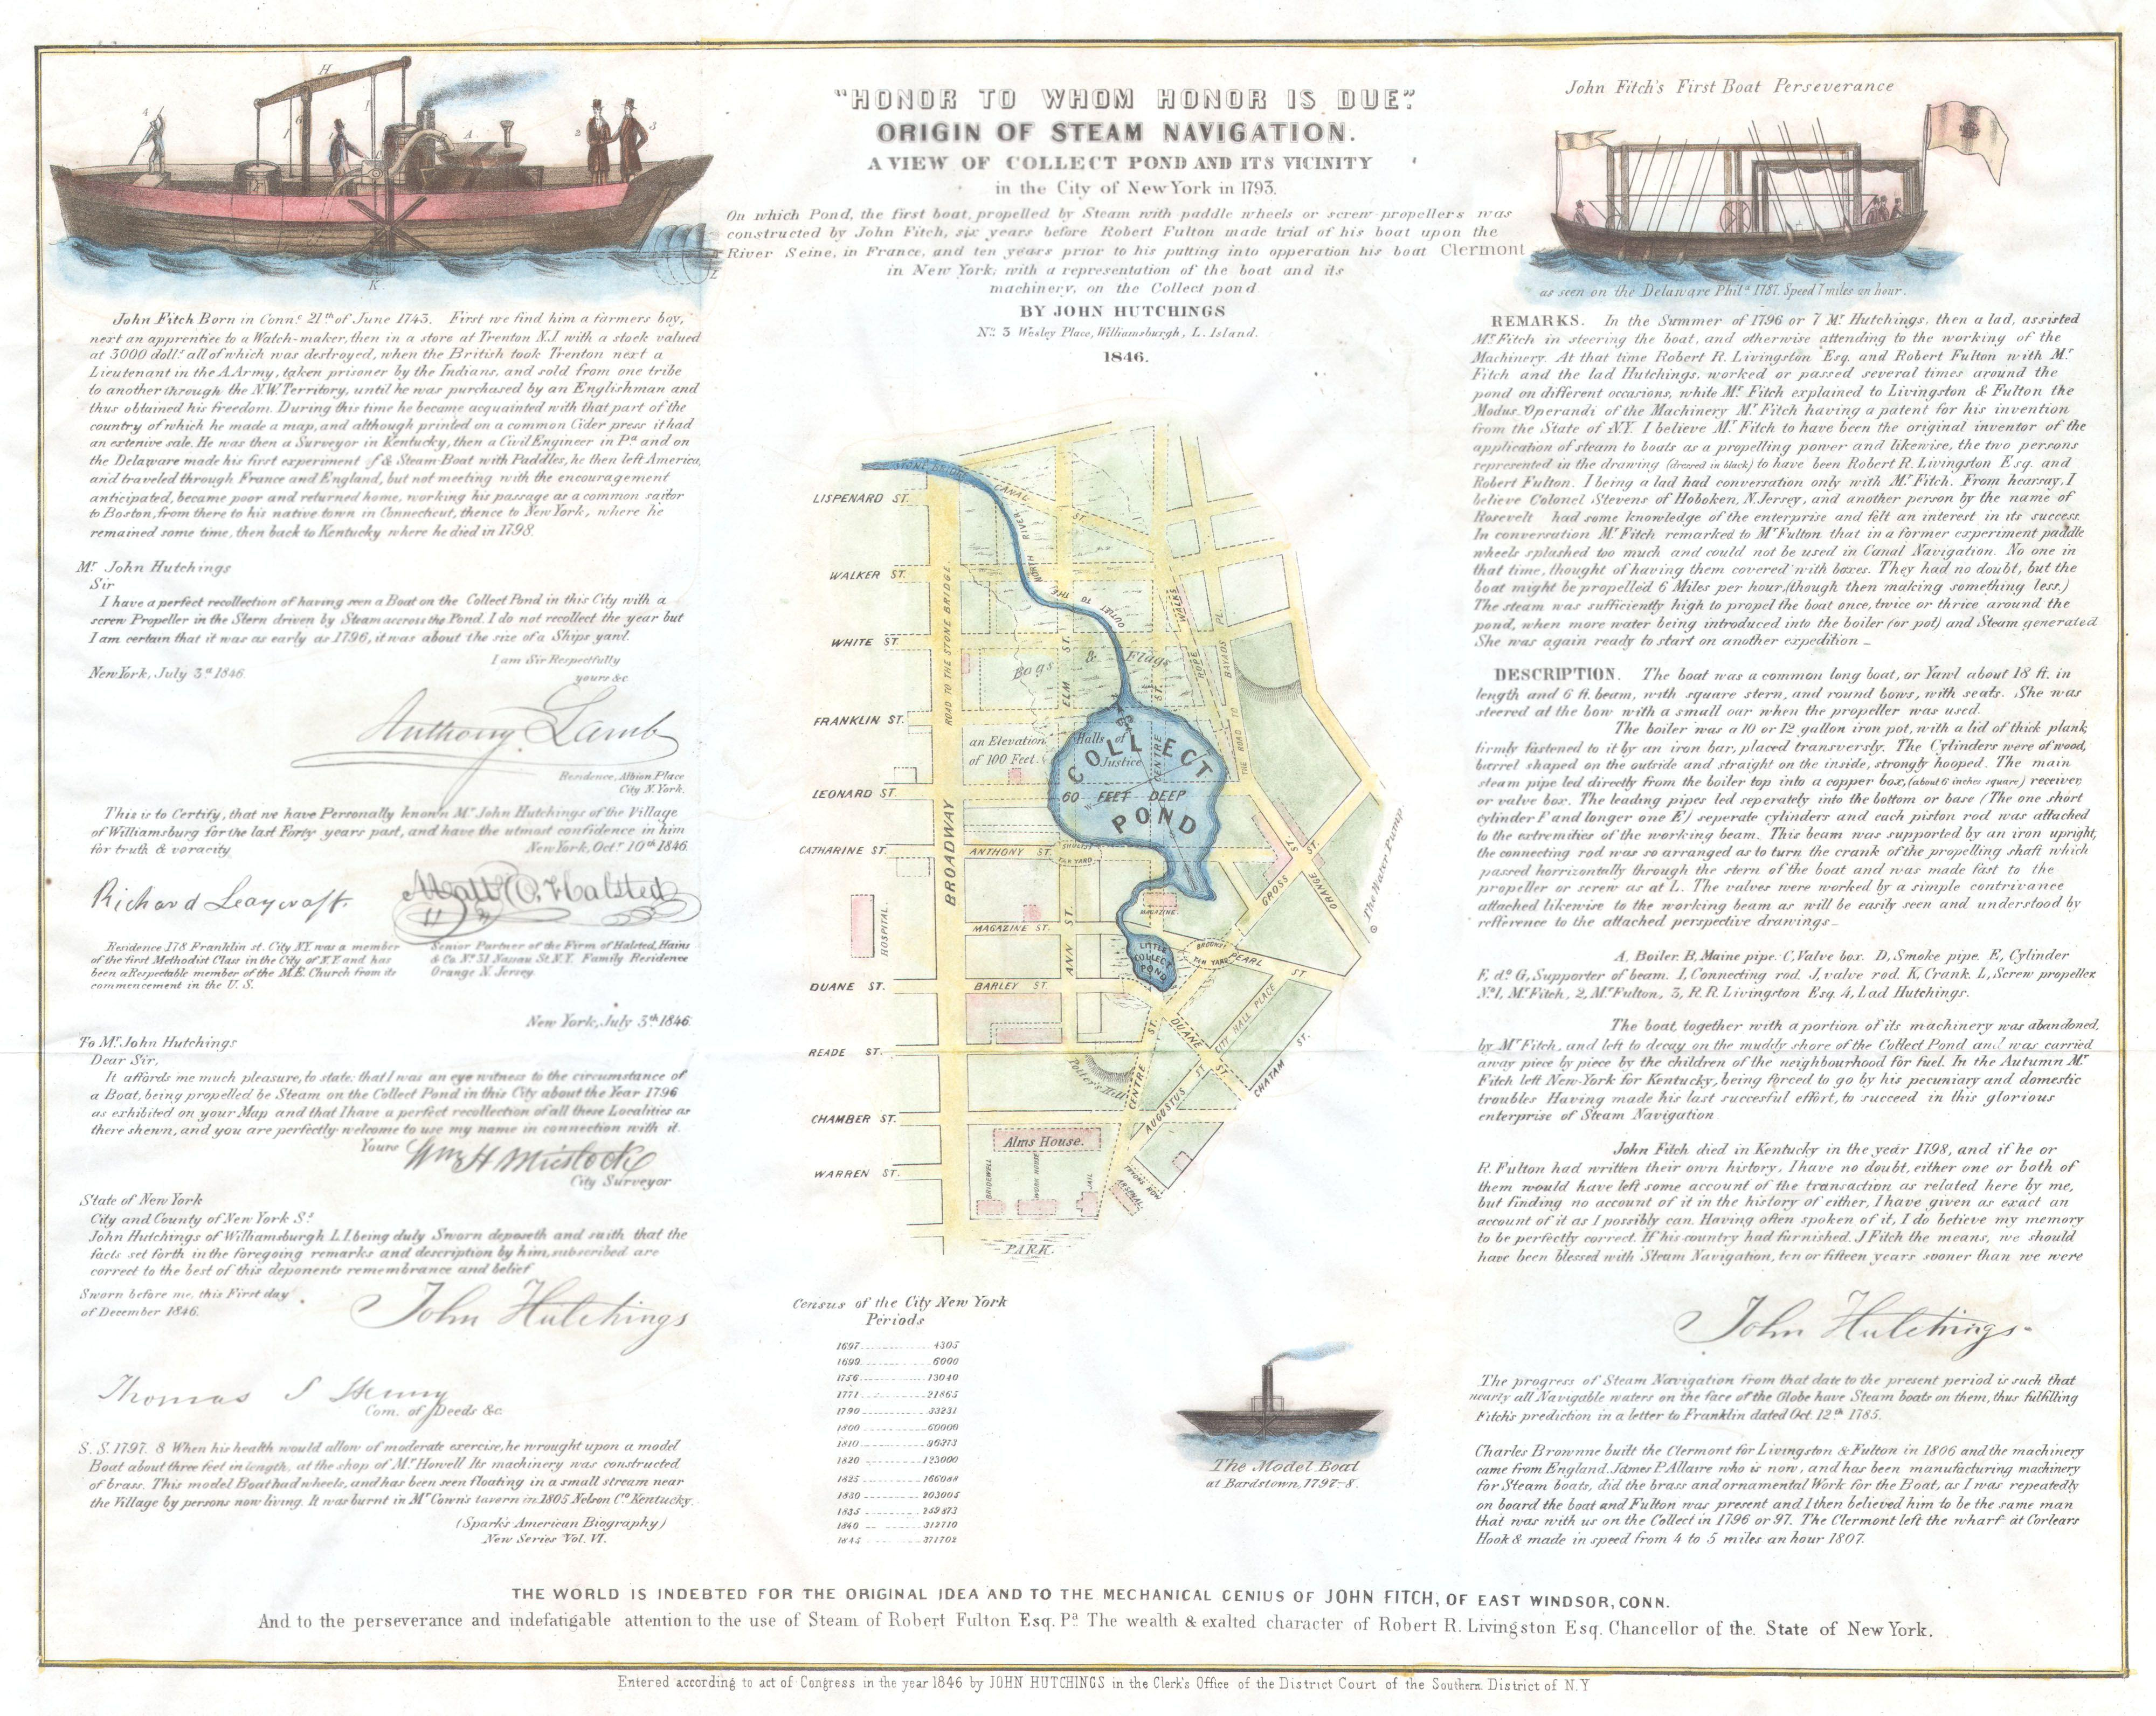 "HONOR TO WHOM HONOR IS DUE."
ORIGIN OF STEAM NAVIGATION.
A VIEW OF COLLECT POND AND ITS VICINITY
in the City of New York in 1793.
On which Pond, the first boat, propelled by Steam with paddle wheels or screw propellers was
constructed by John Fitch, six years before Robert Fulton made trial of his boat upon the
River Seine, in France, and ten years prior to his putting into opperation his boat Clermont
in New York; with a representation of the boat and its
machinery, on the Collect pond
BY JOHN HUTCHINGS
No. 3 Wesley Place, Williamsburgh, L. Island.
1846.
4
H
I
G
I
A
2
3
K
L
John Fitch Born in Conn.t 21th of June 1743. First we find him a farmers boy,
next an apprentice to a Watch-maker, then in a store at Trenton N.J with a stock valued
at 3000 doll.s all of which was destroyed, when the British took Trenton next a
Lieutenant in the A.Army, taken prisoner by the Indians, and sold from one tribe
to another through the N.W. Territory, until he was purchased by an Englishman and
thus obtained his freedom. During this time he became acquainted with that part of the
country of which he made a map, and although printed on a common Cider press it had
an extenive sale. He was then a Surveyor in Kentucky, then a Civil Engineer in Pa and on
the Delaware made his first experiment of a Steam-Boat with Paddles, he then left America,
and traveled through France and England, but not meeting with the encouragement
anticipated, became poor and returned home, working his passage as a common sailor
to Boston, from there to his native town in Connecticut, thence to New York, where he
remained some time, then back to Kentucky where he died in 1798.
Mr. John Hutchings
Sir
I have a perfect recollection of having seen a Boat on the Collect Pond in this City with a
screw Propeller in the Stern driven by Steam accross the Pond. I do not recollect the year but
I am certain that it was as early as 1796, it was about the size of a Ships yawl.
I am Sir Respectfully
yours &c.
New York, July 3d 1846.
Anthony Lamb
Residence, Albion Place
City N. York.
This is to Certify, that we have Personally known Mr John Hutchings of the Village
of Williamsburg for the last Forty years past, and have the utmost confidence in him
for truth & voracity
New York, Oct.r 10th 1846.
Richard Leaycraft.
Matt. O. Halsted
Residence 178 Franklin st. City N.Y. was a member
of the first Methodist Class in the City of N.Y. and has
been a Respectable member of the M.E. Church from its
commencement in the U. S.
Senior Partner of the Firm of Halsted, Hains
& Co. No 31 Nassau St. N.Y. Family Residence
Orange N. Jersey.
New York, July 3th 1846.
To Mr. John Hutchings
Dear Sir,
It affords me much pleasure, to state: that I was an eye witness to the circumstance of
a Boat, being propelled be Steam on the Collect Pond in this City about the Year 1796
as exhibited on your Map and that I have a perfect recollection of all these Localities as
there shewn, and you are perfectly welcome to use my name in connection with it.
Yours
City Surveyor
State of New York
City and County of New York S.s
John Hutchings of Williamsburgh L.I. being duly Sworn deposeth and saith that the
facts set forth in the foregoing remarks and description by him, subscribed are
correct to the best of this deponents remembrance and belief
Sworn before me, this First day
of December 1846.
John Hutchings
Thomas S Henny
Com. of Deeds &c.
S. S. 1797. 8 When his health would allow of moderate exercise, he wrought upon a model
Boat about three feet in length, at the shop of Mr. Howell Its machinery was constructed
of brass. This model Boat had wheels, and has been seen floating in a small stream near
the Village by persons now living. It was burnt in Mc Cown's tavern in 1805 Nelson Co. Kentucky.
(Spark's American Biography)
New Series Vol. VI.
STONE BRIDGE
CANAL ST
LISPENARD ST.
WALKER ST.
WHITE ST.
FRANKLIN ST.
LEONARD ST.
CATHARINE ST.
DUANE ST.
READE ST.
CHAMBER ST.
WARREN ST.
BROADWAY
ROAD TO THE STONE BRIDGE
OUTLET TO THE NORTH RIVER
ELM ST.
Bogs & Flags
ROPE WALKS
THE ROAD TO BAYADS PL.
an Elevation
of 100 Feet.
Halls of
Justice
COLLECT
60 FEET DEEP
POND
CENTRE ST.
ANTHONY ST.
TAN YARD
HOSPITAL
MAGAZINE ST.
MAGAZINE.
ANN ST.
LITTLE
COLLECT
POND
TAN YARD
PEARL ST.
CROSS ST.
ORANGE ST.
The Water Pump
BARLEY ST.
Potter's Hill
CENTRE ST.
DUANE ST.
CITY HALL PLACE
AUGUSTUS ST
CHATAM ST.
Alms House.
BRIDEWELL
WORK HOUSE
JAIL
ARSENAL
TRYONS ROW
PARK.
Census of the City New York
Periods
1697 4305
1699 6000
1756 13040
1771 21865
1790 33231
1800 60000
1810 96373
1820 123000
1825 166088
1830 203005
1835 259873
1840 312710
1845 371702
The Model Boat
at Bardstown, 1797-8.
John Fitch's First Boat Perseverance
as seen on the Delaware Phil.a 1787. Speed 7 miles an hour.
REMARKS. In the Summer of 1796 or 7 Mr. Hutchings, then a lad, assisted
Mr. Fitch in steering the boat, and otherwise attending to the working of the
Machinery. At that time Robert R. Livingston Esq. and Robert Fulton with Mr.
Fitch and the lad Hutchings, worked or passed several times around the
pond on different occasions, while Mr. Fitch explained to Livingston & Fulton the
Modus-Operandi of the Machinery Mr. Fitch having a patent for his invention
from the State of N.Y. I believe Mr. Fitch to have been the original inventor of the
application of steam to boats as a propelling power and likewise, the two persons
represented in the drawing (dressed in black) to have been Robert R. Livingston Esq. and
Robert Fulton. I being a lad had conversation only with Mr. Fitch. From hearsay, I
believe Colonel Stevens of Hoboken, N. Jersey, and another person by the name of
Rosevelt had some knowledge of the enterprise and felt an interest in its success.
In conversation Mr. Fitch remarked to Mr Fulton that in a former experiment paddle
wheels splashed too much and could not be used in Canal Navigation. No one in
that time, thought of having them covered with boxes. They had no doubt, but the
boat might be propelled 6 Miles per hour, (though then making something less.)
The steam was sufficiently high to propel the boat once, twice or thrice around the
pond, when more water being introduced into the boiler (or pot) and Steam generated
She was again ready to start on another expedition _
DESCRIPTION. The boat was a common long boat, or Yawl about 18 ft. in
length and 6 ft. beam, with square stern, and round bows, with seats. She was
steered at the bow with a small oar when the propeller was used.
The boiler was a 10 or 12 gallon iron pot, with a lid of thick plank,
firmly fastened to it by an iron bar, placed transversly. The Cylinders were of wood,
barrel shaped on the outside and straight on the inside, strongly hooped. The main
steam pipe led directly from the boiler top into a copper box, (about 6 inches square) receiver,
or valve box. The leading pipes led seperately into the bottom or base (The one short
cylinder F and longer one E) seperate cylinders and each piston rod was attached
to the extremities of the working beam. This beam was supported by an iron upright,
the connecting rod was so arranged as to turn the crank of the propelling shaft which
passed horrizontally through the stern of the boat and was made fast to the
propeller or screw as at L. The valves were worked by a simple contrivance
attached likewise to the working beam as will be easily seen and understood by
refference to the attached perspective drawings_
A, Boiler. B, Maine pipe. C, Valve box. D, Smoke pipe. E, Cylinder
F, do. G, Supporter of beam. I, Connecting rod. J, valve rod. K, Crank. L, Screw propeller,
No. 1, Mr. Fitch, 2, Mr. Fulton, 3, R.R. Livingston Esq. 4, Lad Hutchings.
The boat, together with a portion of its machinery was abandoned,
by Mr. Fitch, and left to decay on the muddy shore of the Collect Pond and was carried
away piece by piece by the children of the neighbourhood for fuel. In the Autumn Mr.
Fitch left New-York for Kentucky, being forced to go by his pecuniary and domestic
troubles Having made his last succesful effort, to succeed in this glorious
enterprise of Steam Navigation
John Fitch died in Kentucky in the year 1798, and if he or
R. Fulton had written their own history, I have no doubt, either one or both of
them would have left some account of the transaction as related here by me,
but finding no account of it in the history of either, I have given as exact an
account of it as I possibly can. Having often spoken of it, I do believe my memory
to be perfectly correct. If his country had furnished, J Fitch the means, we should
have been blessed with Steam Navigation, ten or fifteen years sooner than we were
John Hutchings-
The progress of Steam Navigation from that date to the present period is such that
nearly all Navigable waters on the face of the Globe have Steam boats on them, thus fulfilling
Fitch's prediction in a letter to Franklin dated Oct. 12th 1785.
Charles Brownne built the Clermont for Livingston & Fulton in 1806 and the machinery
came from England. James P. Allaire who is now, and has been manufacturing machinery
for Steam boats, did the brass and ornamental Work for the Boat, as I was repeatedly
on board the boat and Fulton was present and I then believed him to be the same man
that was with us on the Collect in 1796 or 97. The Clermont left the wharf at Corlears
Hook & made in speed from 4 to 5 miles an hour 1807.
THE WORLD IS INDEBTED FOR THE ORIGINAL IDEA AND TO THE MECHANICAL GENIUS OF JOHN FITCH, OF EAST WINDSOR, CONN.
And to the perseverance and indefatigable attention to the use of Steam of Robert Fulton Esq. Pa. The wealth & exalted character of Robert R. Livingston Esq. Chancellor of the State of New York.
Entered according to act of Congress in the year 1846 by JOHN HUTCHINGS in the Clerk's Office of the District Court of the Southern District of N.Y